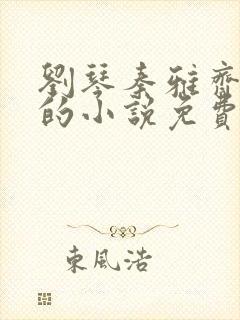 劉琴秦雅齋
的小説免費
東風浩